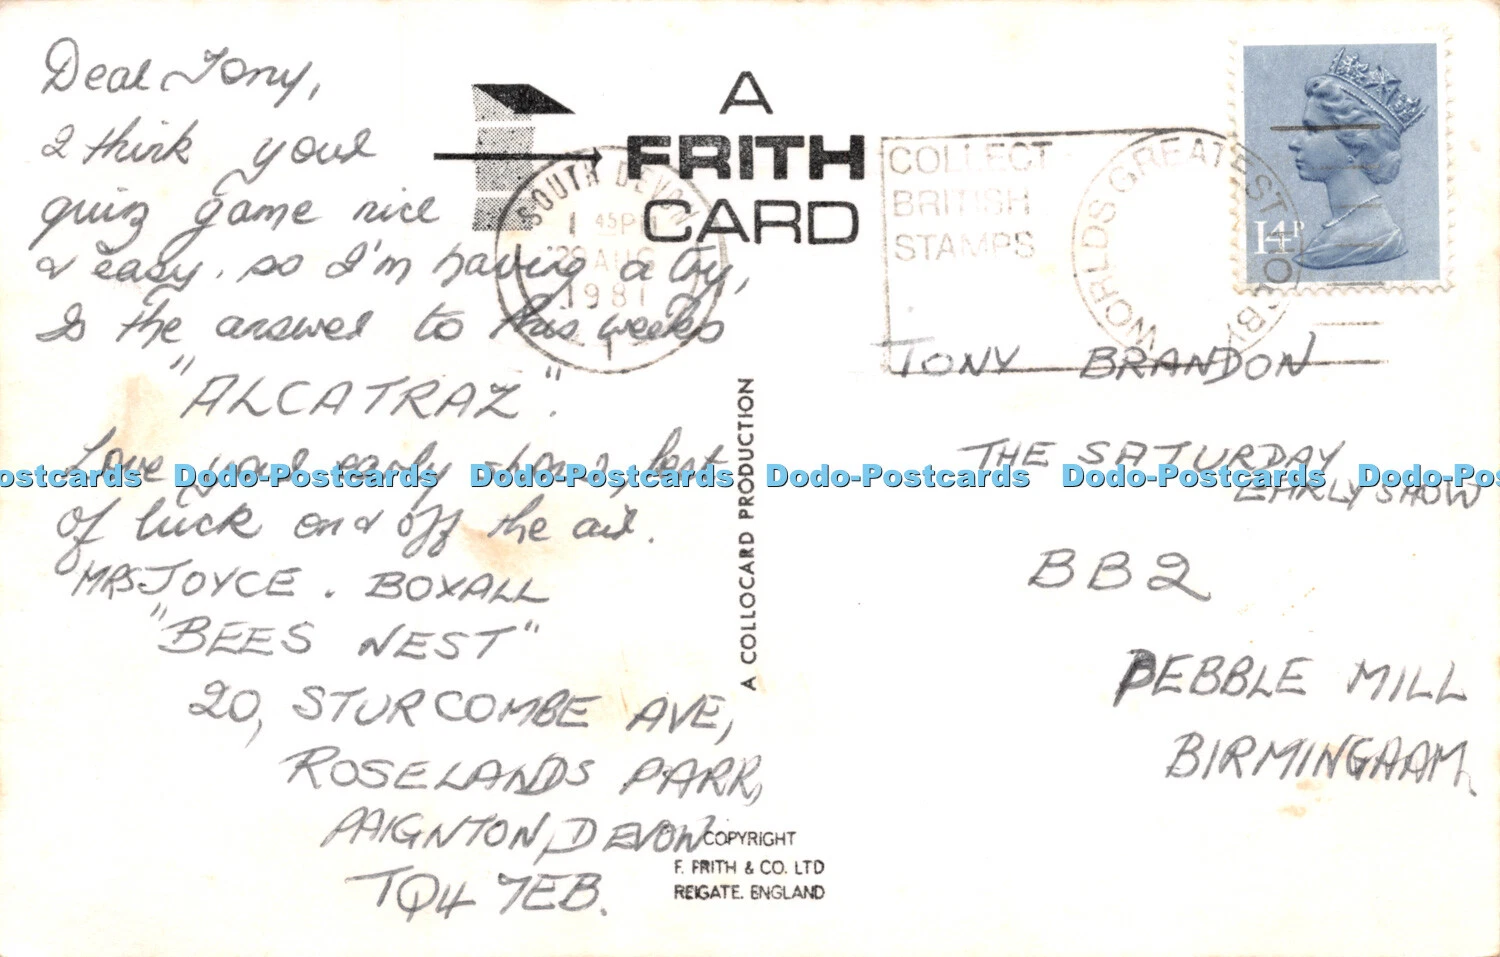 Dear Tony,
I think your
quiz game nice
& easy. so I'm having a try,
Is the answer to this weeks
"ALCATRAZ".
Love your early show, best
of luck on & off the air.
MRS JOYCE. BOXALL
"BEES NEST"
20, STURCOMBE AVE,
ROSELANDS PARK,
PAIGNTON, DEVON
TQ4 7EB.
A
FRITH
CARD
SOUTH DEVON
1 45PM
29 AUG
1981
COLLECT
BRITISH
STAMPS
WORLDS GREATEST HOBBY
14P
TONY BRANDON
THE SATURDAY
EARLY SHOW
BB2
PEBBLE MILL
BIRMINGHAM,
A COLLOCARD PRODUCTION
COPYRIGHT
F. FRITH & CO. LTD
REIGATE. ENGLAND
Dodo-Postcards Dodo-Postcards Dodo-Postcards Dodo-Postcards